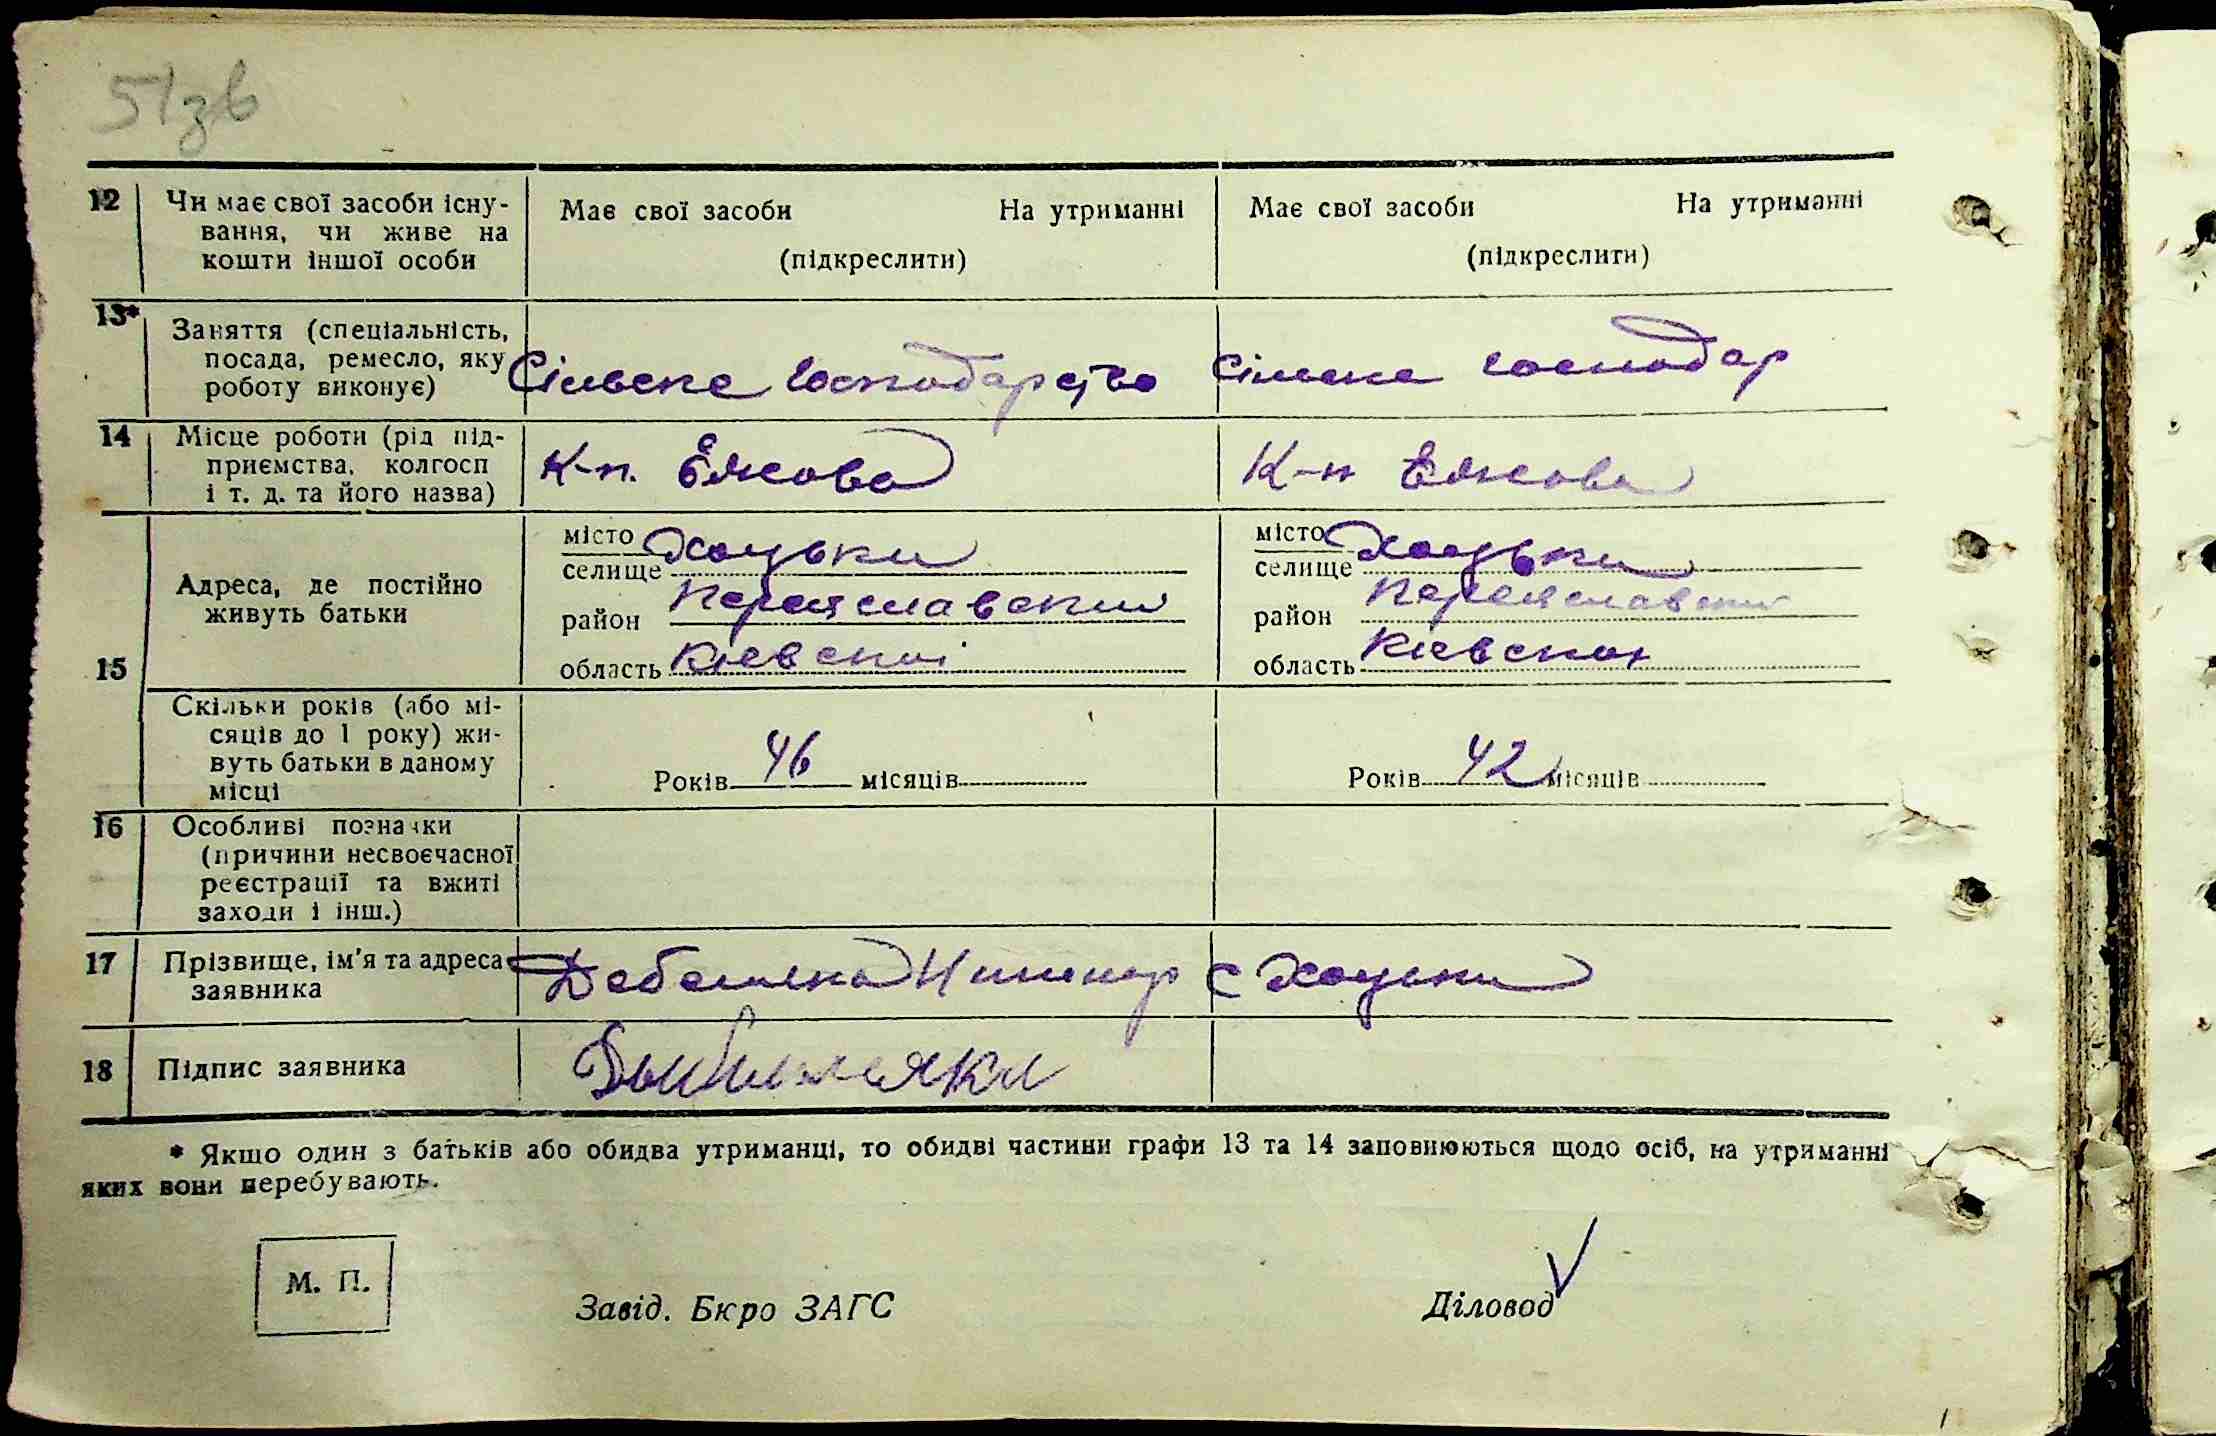 51зв
12 Чи має свої засоби існу-
вання, чи живе на
кошти іншої особи
Має свої засоби На утриманні
(підкреслити)
Має свої засоби На утриманні
(підкреслити)
13* Заняття (спеціальність,
посада, ремесло, яку
роботу виконує)
Сільске господарство
Сільске господар
14 Місце роботи (рід під-
приємства, колгосп
і т. д. та його назва)
К-п. Ежова
К-п Ежова
15 Адреса, де постійно
живуть батьки
місто Хоцьки
селище
район Переяславский
область Кіевскої
місто Хоцьки
селище
район Переяславский
область Кіевскої
Скільки років (або мі-
сяців до 1 року) жи-
вуть батьки в даному
місці
Років 46 місяців
Років 42 місяців
16 Особливі позначки
(причини несвоєчасної
реєстрації та вжиті
заходи і інш.)
17 Прізвище, ім'я та адреса
заявника
с Хоцьки
18 Підпис заявника
* Якщо один з батьків або обидва утриманці, то обидві частини графи 13 та 14 заповнюються щодо осіб, на утриманні
яких вони перебувають.
М. П.
Завід. Бюро ЗАГС
Діловод